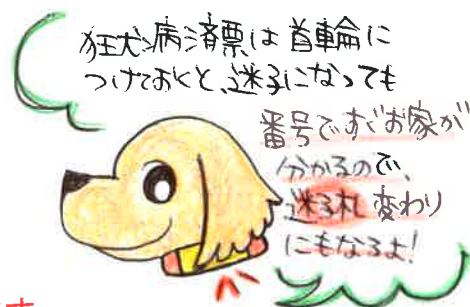 狂犬病済票は首輪に
つけておくと、迷子になっても
番号ですぐお家が
分かるので、
迷子札変わり
にもなるよ!